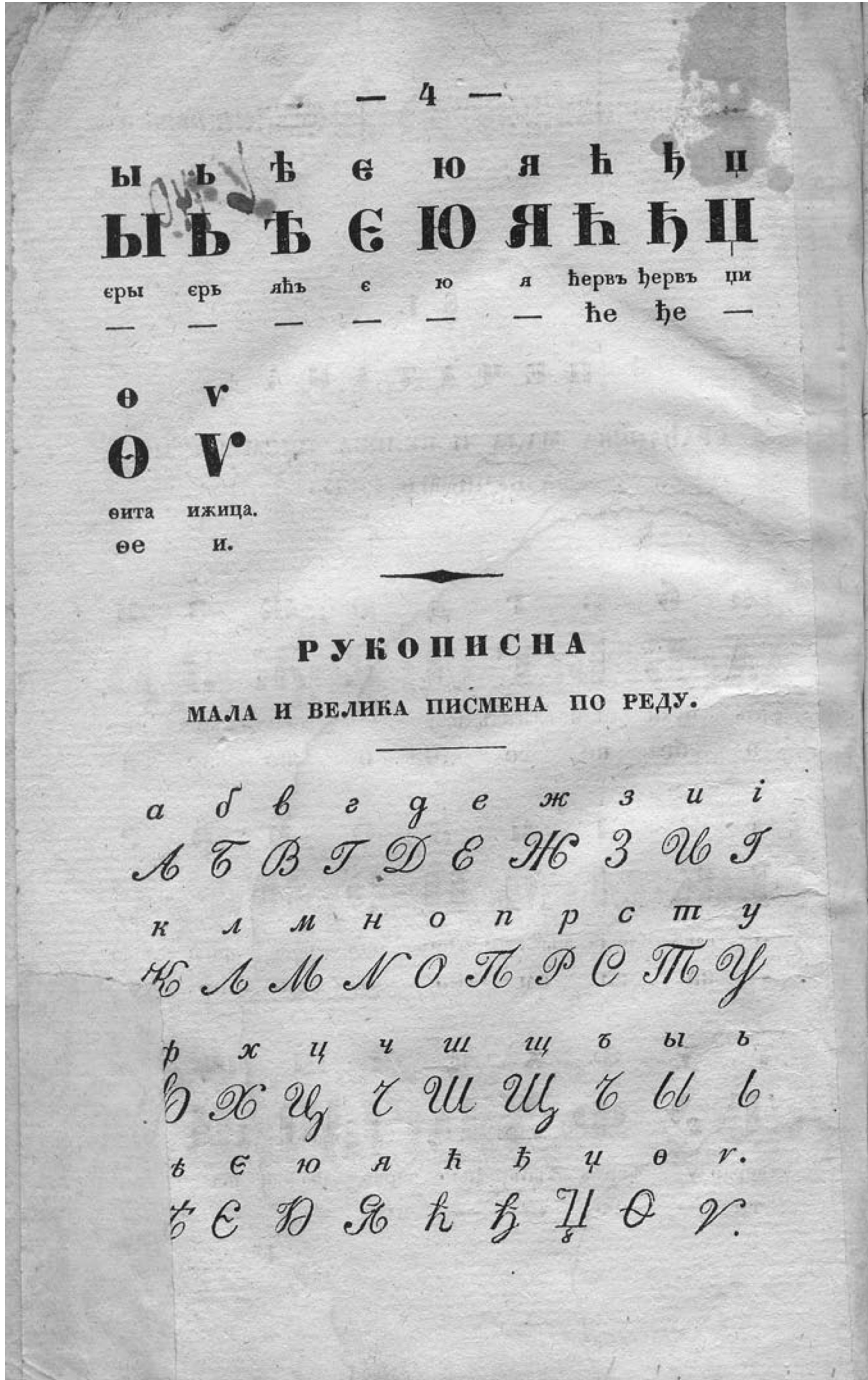 — 4 —
ы ь ѣ є ю я ћ ђ џ
Ы Ь Ѣ Є Ю Я Ћ Ђ Џ
єры єрь яћь є ю я ћервъ ђервъ џи
— — — — — — ће ђе —
ѳ ѵ
Ѳ Ѵ
ѳита ижица.
ѳе и.
РУКОПИСНА
МАЛА И ВЕЛИКА ПИСМЕНА ПО РЕДУ.
а б в г д е ж з и і
А Б В Г Д Е Ж З И І
к л м н о п р с т у
К Л М N О П Р С Т У
ф х ц ч ш щ ъ ы ь
Ф Х Ц Ч Ш Щ Ъ Ы Ь
ѣ є ю я ћ ђ џ ѳ ѵ.
Ѣ Є Ю Я Ћ Ђ Џ Ѳ Ѵ.